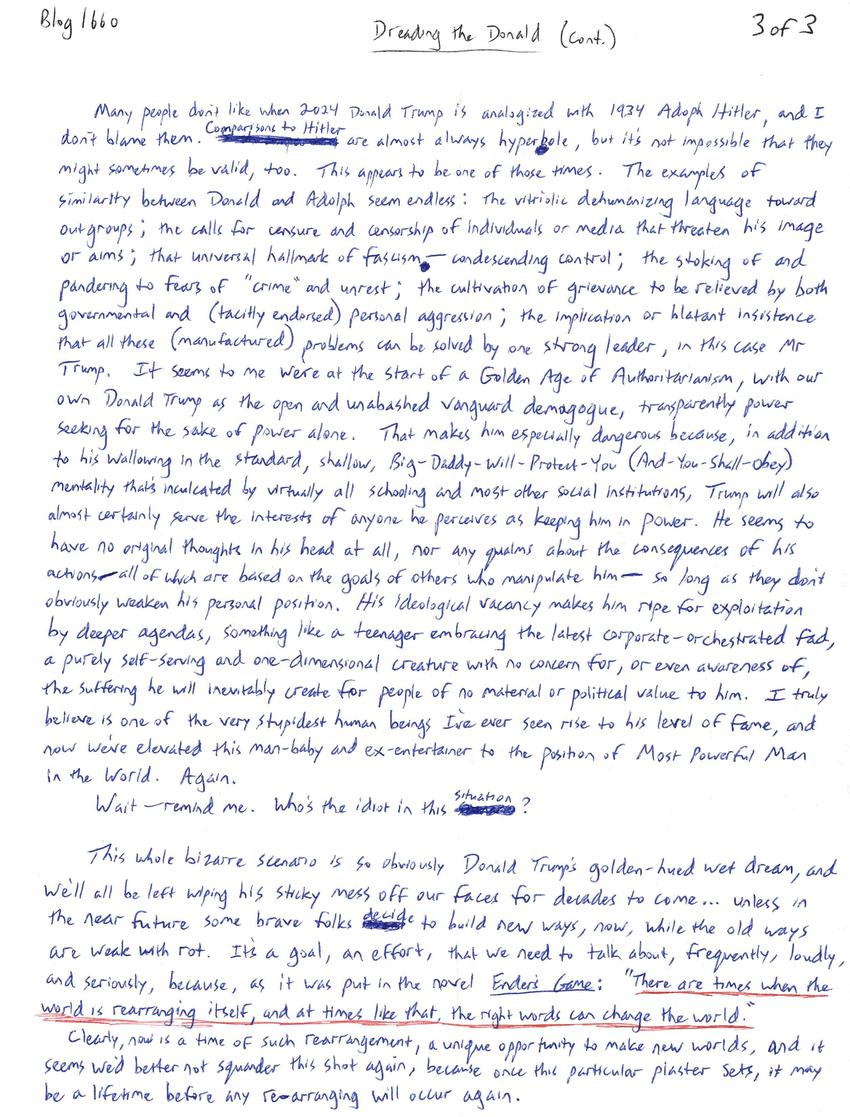 Blog 1660
Dreading the Donald (cont.)
3 of 3
Many people don't like when 2024 Donald Trump is analogized with 1934 Adoph Hitler, and I
don't blame them. Comparisons to Hitler are almost always hyperbole, but it's not impossible that they
might sometimes be valid, too. This appears to be one of those times. The examples of
similarity between Donald and Adolph seem endless: the vitriolic dehumanizing language toward
outgroups; the calls for censure and censorship of individuals or media that threaten his image
or aims; that universal hallmark of fascism — condescending control; the stoking of and
pandering to fears of "crime" and unrest; the cultivation of grievance to be relieved by both
governmental and (tacitly endorsed) personal aggression; the implication or blatant insistence
that all these (manufactured) problems can be solved by one strong leader, in this case Mr
Trump. It seems to me we're at the start of a Golden Age of Authoritarianism, with our
own Donald Trump as the open and unabashed vanguard demagogue, transparently power
seeking for the sake of power alone. That makes him especially dangerous because, in addition
to his wallowing in the standard, shallow, Big-Daddy-Will-Protect-You (And-You-Shall-obey)
mentality that's inculcated by virtually all schooling and most other social institutions, Trump will also
almost certainly serve the interests of anyone he perceives as keeping him in power. He seems to
have no original thoughts in his head at all, nor any qualms about the consequences of his
actions — all of which are based on the goals of others who manipulate him — so long as they don't
obviously weaken his personal position. His ideological vacancy makes him ripe for exploitation
by deeper agendas, something like a teenager embracing the latest corporate-orchestrated fad,
a purely self-serving and one-dimensional creature with no concern for, or even awareness of,
the suffering he will inevitably create for people of no material or political value to him. I truly
believe is one of the very stupidest human beings I've ever seen rise to his level of fame, and
now we've elevated this man-baby and ex-entertainer to the position of Most Powerful Man
in the World. Again.
Wait — remind me. Who's the idiot in this situation?
This whole bizarre scenario is so obviously Donald Trump's golden-hued wet dream, and
we'll all be left wiping his sticky mess off our faces for decades to come... unless in
the near future some brave folks decide to build new ways, now, while the old ways
are weak with rot. It's a goal, an effort, that we need to talk about, frequently, loudly,
and seriously, because, as it was put in the novel Ender's Game: "There are times when the
world is rearranging itself, and at times like that, the right words can change the world."
Clearly, now is a time of such rearrangement, a unique opportunity to make new worlds, and it
seems we'd better not squander this shot again, because once this particular plaster sets, it may
be a lifetime before any re-arranging will occur again.